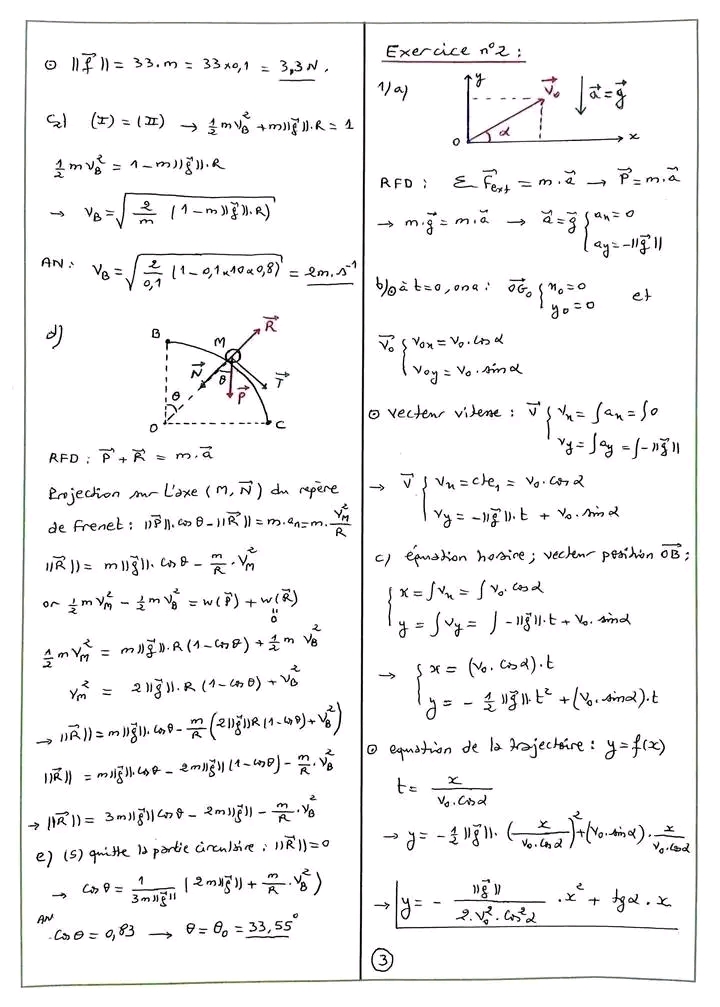 ⊙ ||f⃗|| = 33.m = 33×0,1 = 3,3 N.
C₂) (I) = (II) → ½ m V_B² + m||g⃗||.R = 1
½ m V_B² = 1 - m||g⃗||.R
→ V_B = √(2/m (1 - m||g⃗||.R))
AN: V_B = √(2/0,1 (1 - 0,1×10×0,8)) = 2m.s⁻¹
d)
B M R⃗
N⃗ θ P⃗ T⃗
θ
O C
RFD : P⃗ + R⃗ = m.a⃗
Projection sur L'axe (M, N⃗) du repère
de Frenet : ||P⃗||.cosθ - ||R⃗|| = m.aₙ = m.V_M²/R
||R⃗|| = m||g⃗||.cosθ - m/R.V_M²
or ½ m V_M² - ½ m V_B² = W(P⃗) + W(R⃗)
0
½ m V_M² = m||g⃗||.R(1-cosθ) + ½ m V_B²
V_M² = 2||g⃗||.R(1-cosθ) + V_B²
→ ||R⃗|| = m||g⃗||.cosθ - m/R (2||g⃗||R(1-cosθ) + V_B²)
||R⃗|| = m||g⃗||.cosθ - 2m||g⃗||(1-cosθ) - m/R.V_B²
→ ||R⃗|| = 3m||g⃗||cosθ - 2m||g⃗|| - m/R.V_B²
e) (S) quitte la partie circulaire : ||R⃗|| = 0
→ cosθ = 1/(3m||g⃗||) (2m||g⃗|| + m/R.V_B²)
AN
cosθ = 0,83 → θ = θ₀ = 33,55°
Exercice n°2 :
1) a)
y V⃗₀ a⃗ = g⃗
O α x
RFD : Σ F⃗ext = m.a⃗ → P⃗ = m.a⃗
→ m.g⃗ = m.a⃗ → a⃗ = g⃗ { aₓ = 0
a_y = -||g⃗||
b) ⊙ à t=0, on a : OG⃗₀ { x₀ = 0
y₀ = 0 et
V⃗₀ { V₀ₓ = V₀.cosα
V₀y = V₀.sinα
⊙ vecteur vitesse : V⃗ { Vₓ = ∫aₓ = ∫0
V_y = ∫a_y = ∫-||g⃗||
→ V⃗ { Vₓ = cte₁ = V₀.cosα
V_y = -||g⃗||.t + V₀.sinα
c) équation horaire ; vecteur position OB⃗ ;
{ x = ∫Vₓ = ∫V₀.cosα
y = ∫V_y = ∫-||g⃗||.t + V₀.sinα
→ { x = (V₀.cosα).t
y = -½ ||g⃗||.t² + (V₀.sinα).t
⊙ equation de la trajectoire : y = f(x)
t = x/(V₀.cosα)
→ y = -½ ||g⃗||.(x/(V₀.cosα))² + (V₀.sinα).x/(V₀.cosα)
→ y = - ||g⃗||/(2.V₀².cos²α) .x² + tgα.x
3